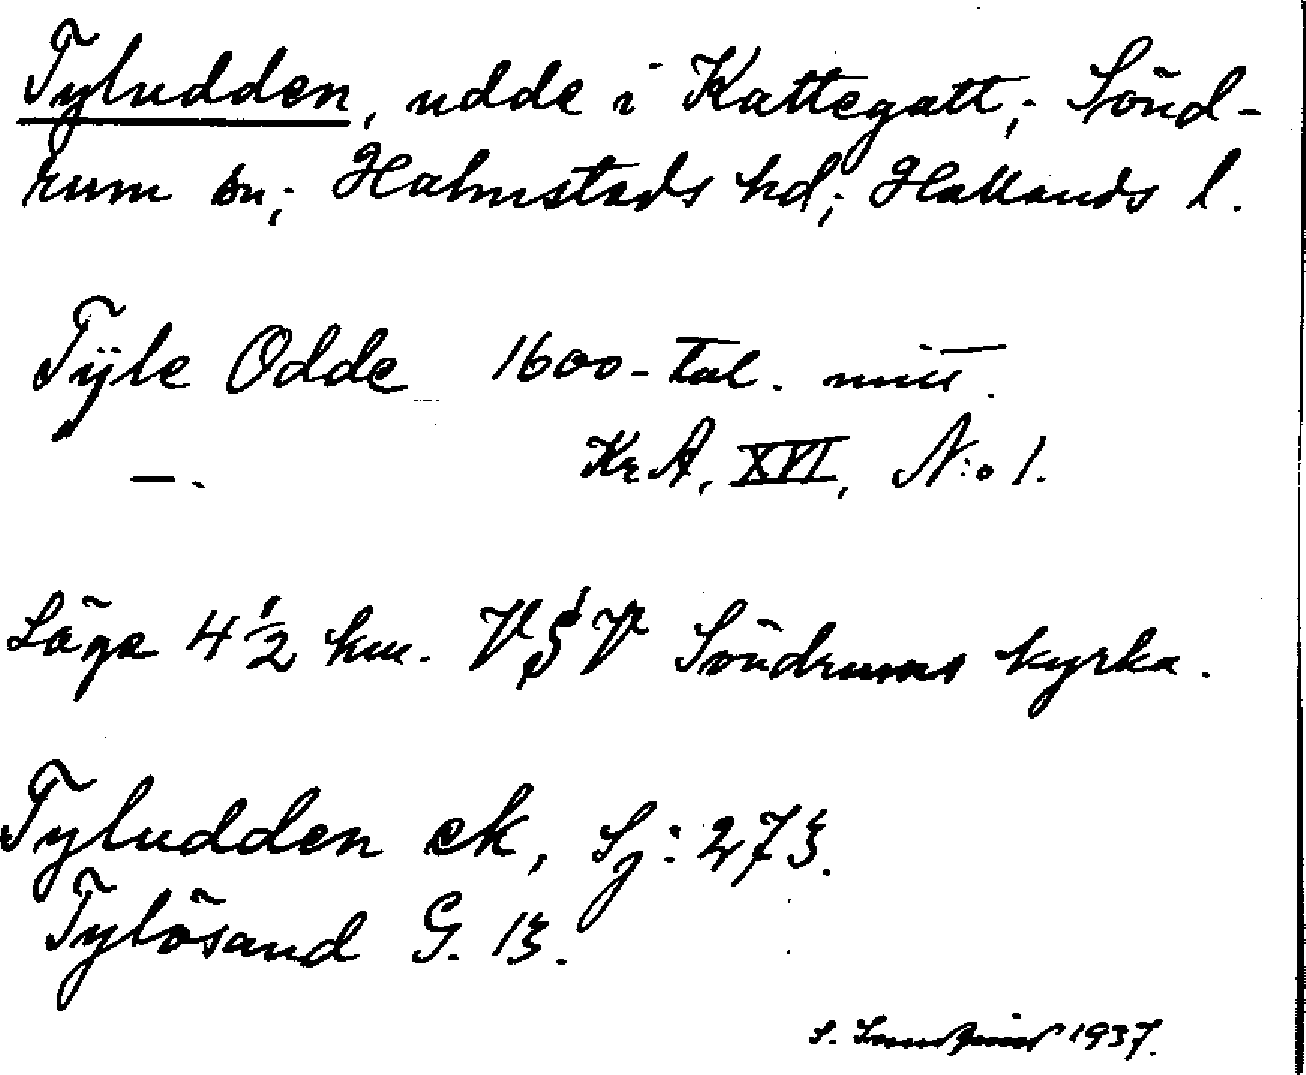 Tyludden, udde i Kattegatt; Sönd-
rum sn; Halmstads hd; Hallands l.
Tÿle Odde 1600-tal. mitt.
—. Kr A, XVI, N:o 1.
Läge 4 1/2 km. VSV Söndrums kyrka.
Tyludden ek, Sj: 273.
Tylösand G. 13.
S. 1937.